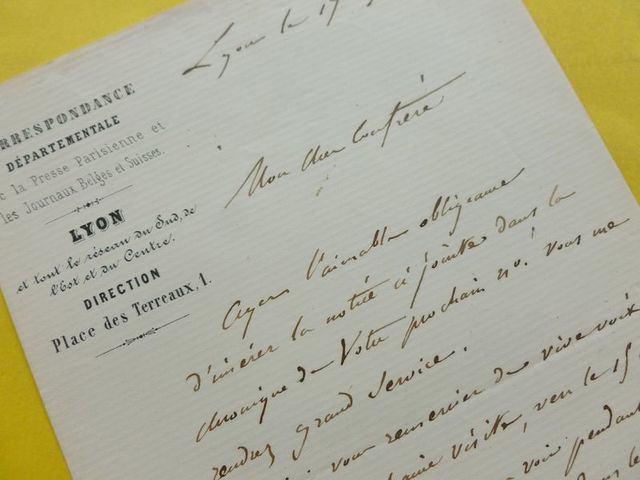 Lyon le 17
RRESPONDANCE
DÉPARTEMENTALE
c la Presse Parisienne et
les Journaux Belges et Suisses.
LYON
et tout le réseau du Sud, de
l'Est et du Centre.
DIRECTION
Place des Terreaux, 1.
Mon cher Confrère
Ayez l'aimable obligeance
d'insérer la notice ci jointe dans la
chronique de Votre prochain no. Vous me
rendrez grand service.
vous remercier de vive voix
visite, vers le 15
voir pendant